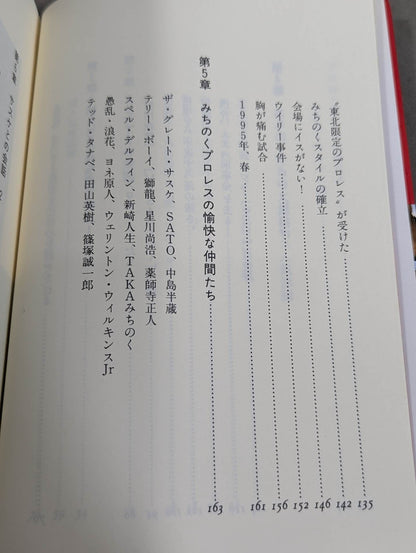 "東北限定のプロレス"が受けた……………135
みちのくスタイルの確立……………142
会場にイスがない!……………146
ウイリー事件……………152
胸が痛む試合……………156
1995年、春……………161
第5章 みちのくプロレスの愉快な仲間たち……………163
ザ・グレート・サスケ、SATO、中島半蔵
テリー・ボーイ、獅龍、星川尚浩、薬師寺正人
スペル・デルフィン、新崎人生、TAKAみちのく
愚乱・浪花、ヨネ原人、ウェリントン・ウィルキンスJr
テッド・タナベ、田山英樹、篠塚誠一郎